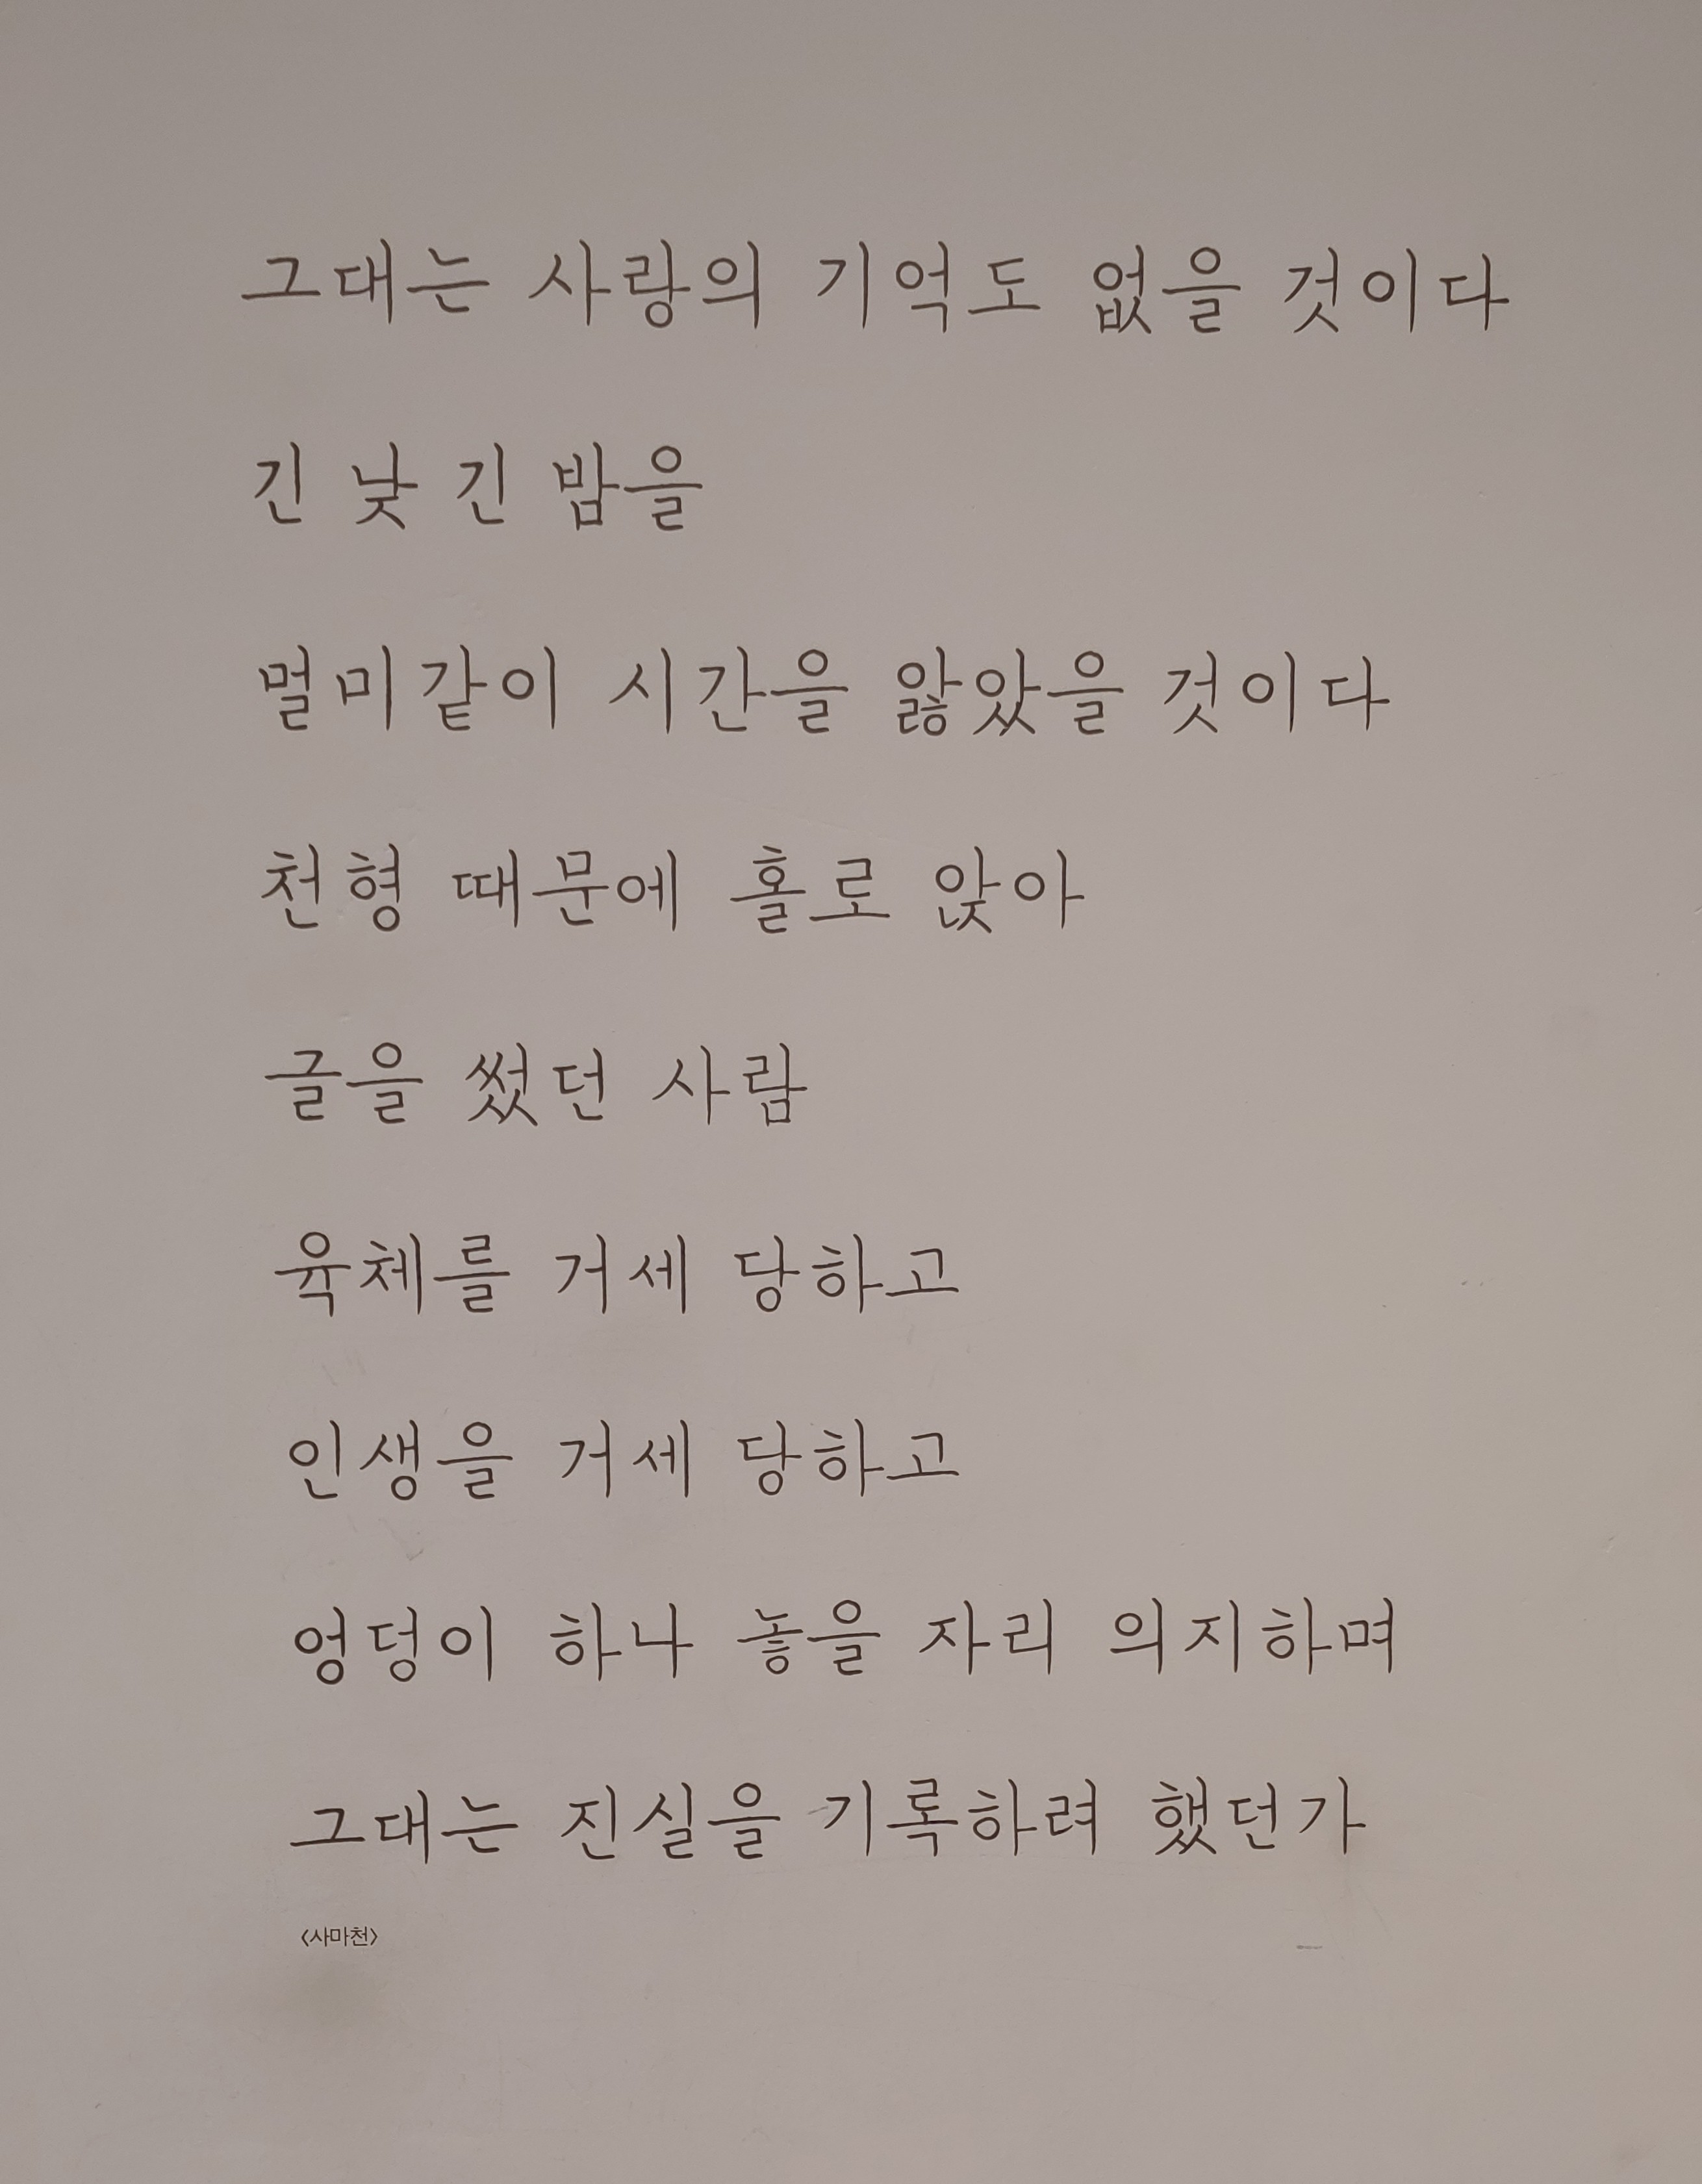 그대는 사랑의 기억도 없을 것이다
긴 낮 긴 밤을
멀미같이 시간을 앓았을 것이다
천형 때문에 홀로 앉아
글을 썼던 사람
육체를 거세 당하고
인생을 거세 당하고
엉덩이 하나 놓을 자리 의지하며
그대는 진실을 기록하려 했던가
〈사마천〉